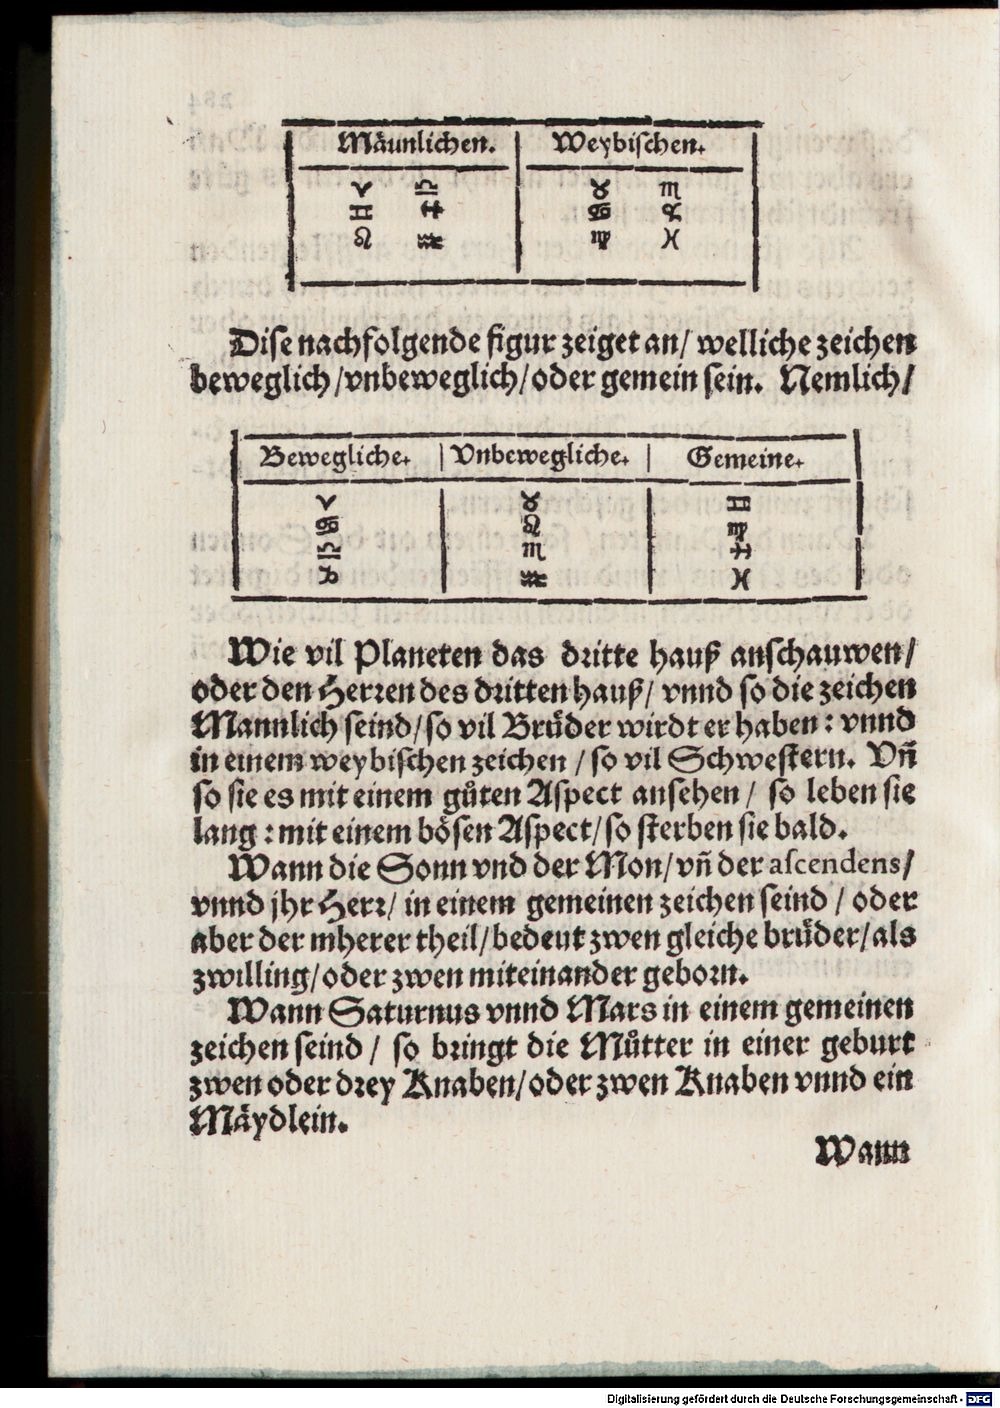 Mäunlichen. Weybischen.
♈ ♎ ♉ ♏
♊ ♐ ♋ ♑
♌ ♒ ♍ ♓
Dise nachfolgende figur zeiget an/ welliche zeichen
beweglich/vnbeweglich/oder gemein sein. Nemlich/
Bewegliche. Vnbewegliche. Gemeine.
♈ ♉ ♊
♋ ♌ ♍
♎ ♏ ♐
♑ ♒ ♓
Wie vil Planeten das dritte hauß anschauwen/
oder den Herren des dritten hauß/ vnnd so die zeichen
Mannlich seind/so vil Brůder wirdt er haben: vnnd
in einem weybischen zeichen /so vil Schwestern. Vñ
so sie es mit einem gůten Aspect ansehen/ so leben sie
lang: mit einem bösen Aspect/so sterben sie bald.
Wann die Sonn vnd der Mon/vñ der ascendens/
vnnd jhr Herr/ in einem gemeinen zeichen seind / oder
aber der mherer theil/bedeut zwen gleiche brůder/als
zwilling/oder zwen miteinander geborn.
Wann Saturnus vnnd Mars in einem gemeinen
zeichen seind / so bringt die Můtter in einer geburt
zwen oder drey Knaben/oder zwen Knaben vnnd ein
Mäydlein.
Wann
Digitalisierung gefördert durch die Deutsche Forschungsgemeinschaft - DFG